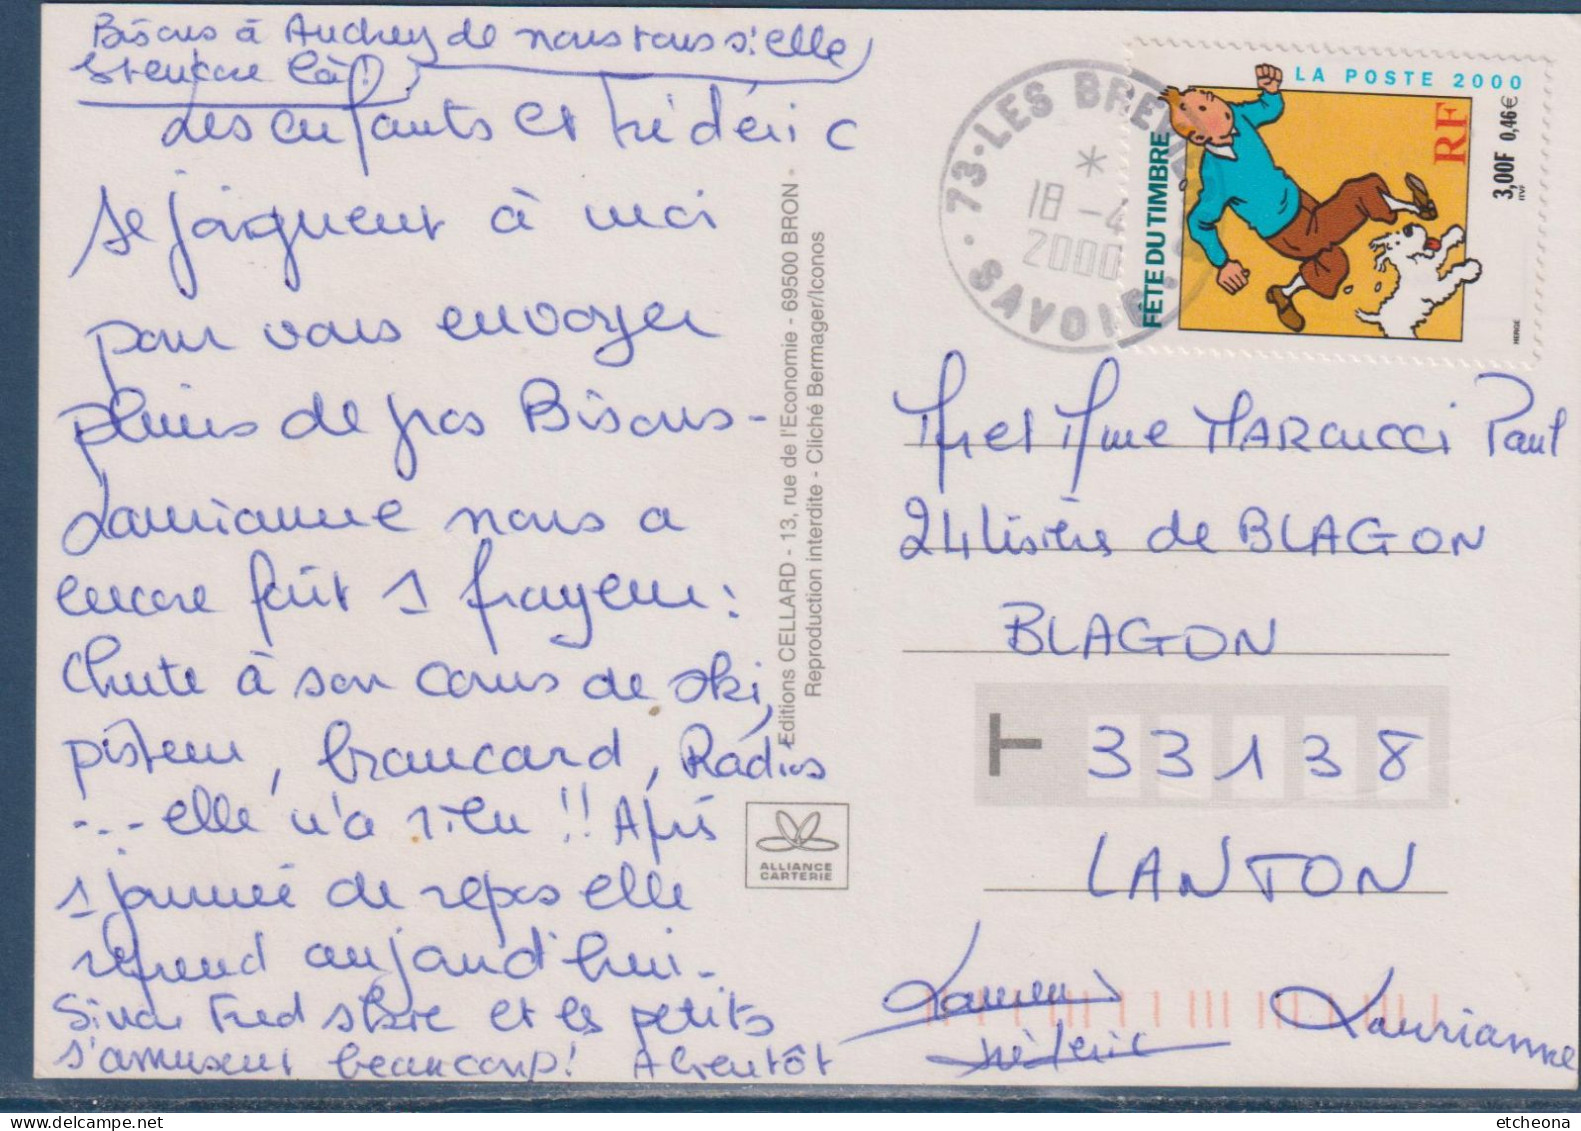 Bisous à Audrey de nous tous si elle
est encore là!
Les enfants et Frédéric
se joignent à moi
pour vous envoyer
pleins de gros Bisous-
Laurianne nous a
encore fait 1 frayeur:
Chute à son cours de ski,
pisteur, brancard, Radios
...elle n'a rien!! Après
1 journée de repos elle
reprend aujourd'hui.
Sinon Fred skie et les petits
s'amusent beaucoup! A bientôt
Editions CELLARD - 13, rue de l'Economie - 69500 BRON -
Reproduction interdite - Cliché Bermager/Iconos
ALLIANCE
CARTERIE
73-LES
*
18 -4
2000
SAVOIE
LA POSTE 2000
FÊTE DU TIMBRE
RF
3,00F 0,46€
ITVF
HERGE
Mr et Mme MARCUCCI Paul
24 lisière de BLAGON
BLAGON
T 33138
LANTON
Frédéric
Laurianne
etcheona